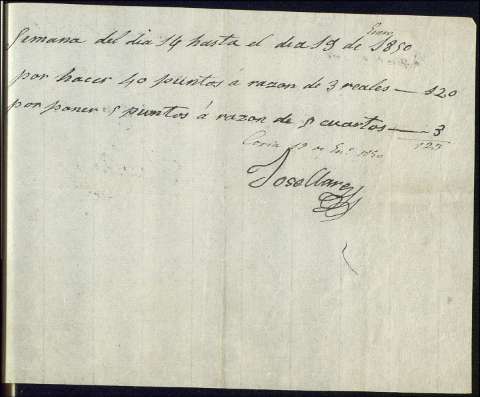 Enero
Semana del dia 14 hasta el dia 19 de 1850
por hacer 40 puntos á razon de 3 reales — 120
por poner 5 puntos á razon de 5 cuartos — 3
123
19 de En.º 1850
Jose Llares